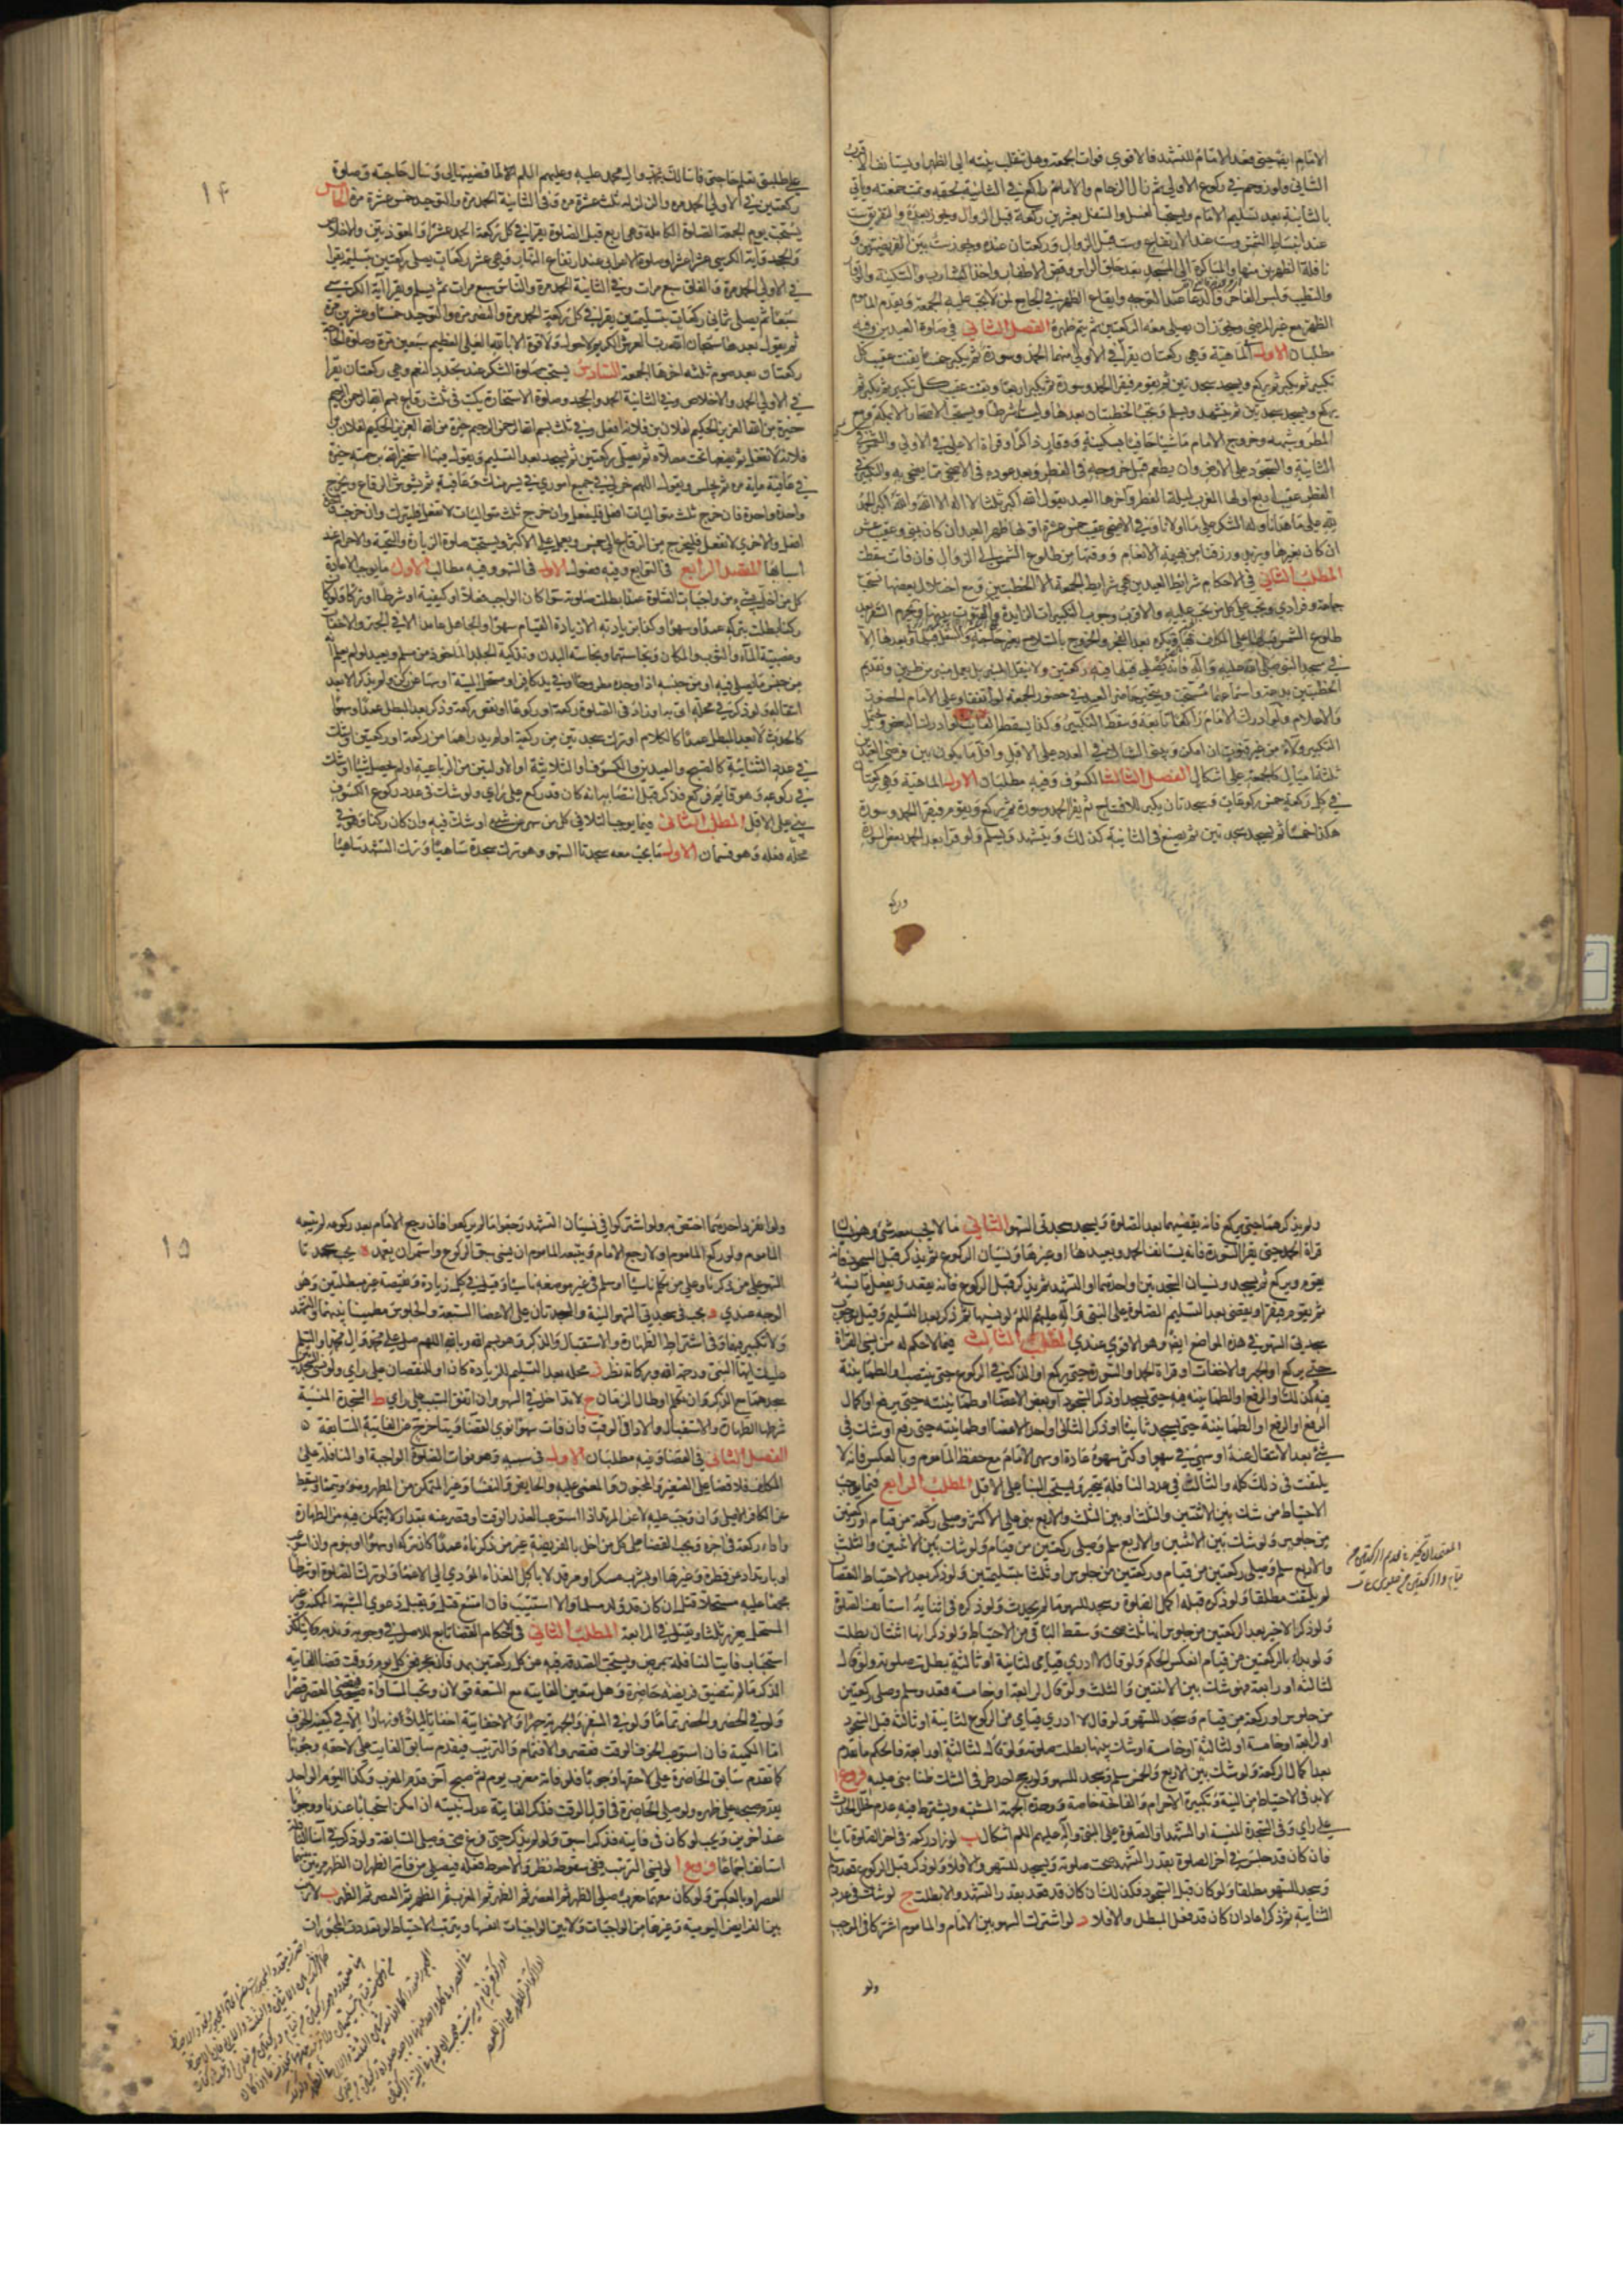 الامام ايضا حتى قعد الامام للتشهد فالاقوى فوات الجمعة وهل تنقلب نيته الى الظهر او يستانف الاقرب
الثانى ولو زوحم فى ركوع الاولى ثم زال الزحام والامام راكع فى الثانية لحقه وتمت جمعته وياتى
بالثانية بعد تسليم الامام ويستحب الغسل والتنفل بعشرين ركعة قبل الزوال ويجوز بعده والتفريق ست
عند انبساط الشمس وست عند الارتفاع وست قبل الزوال وركعتان عنده ويجوز ست بين الفريضتين و
نافلة الظهرين منها والمباكرة الى المسجد بعد حلق الراس وقص الاظفار واخذ الشارب والسكينة والوقار
والتطيب ولبس الفاخر والدعاء عند التوجه وايقاع الظهر فى الجامع لمن لا تجب عليه الجمعة ويقدم الماموم
الظهر مع غير المرضى ويجوز ان يصلى معه الركعتين ثم يتم ظهره الفصل الثانى فى صلوة العيدين وفيه
مطلبان الاول الماهية وهى ركعتان يقرا فى الاولى منهما الحمد وسورة ثم يكبر خمسا يقنت عقيب كل
تكبير ثم يكبر ثم يركع ويسجد سجدتين ثم يقوم فيقرا الحمد وسورة ثم يكبر اربعا ويقنت عقيب كل تكبير ثم يكبر ثم
يركع ويسجد سجدتين ثم يتشهد ويسلم وتجب الخطبتان بعدها وليستا شرطا ويستحب الاصحار الا بمكة ومع
المطر وشبهه وخروج الامام ماشيا حافيا بسكينة ووقار ذاكرا وقراة الاعلى فى الاولى والشمس فى
الثانية والسجود على الارض وان يطعم قبل خروجه فى الفطر وبعد عوده فى الاضحى مما يضحى به والتكبير فى
الفطر عقيب اربع اولها المغرب ليلة الفطر واخرها العيد يقول الله اكبر ثلثا لا اله الا الله والله اكبر الحمد
لله على ما هدانا وله الشكر على ما اولانا وفى الاضحى عقيب خمس عشرة اولها ظهر العيد ان كان بمنى وعقيب عشر
ان كان بغيرها ويزيد ورزقنا من بهيمة الانعام ووقتها من طلوع الشمس الى الزوال فان فات سقطت
المطلب الثانى فى الاحكام شرايط العيدين هى شرايط الجمعة الا الخطبتين ومع اختلال بعضها تستحب
جماعة وفرادى وتجب على كل من تجب عليه والاقرب وجوب التكبيرات الزايدة والقنوت بينها ويحرم السفر بعد
طلوع الشمس قبلها على المكلف بها ويكره بعد الفجر والخروج بالسلاح لغير حاجة والتنفل قبلها وبعدها الا
فى مسجد النبى صلى الله عليه وآله فانه يصلى قبلها فيه ركعتين ولا ينقل المنبر بل يعمل منبر من طين وتقديم
الخطبتين بدعة واستماعهما مستحب ويتخير حاضر العيد فى حضور الجمعة لو اتفقتا وعلى الامام الحضور
والاعلام ولو ادرك الامام راكعا تابعه وسقط التكبير وكذا يسقط الفايت لو ادرك البعض ويحتمل
التكبير ولاء من غير قنوت ان امكن ويبنى الشاك فى العدد على الاقل واقل ما يكون بين فرضى العيدين
ثلثة اميال كالجمعة على اشكال الفصل الثالث الكسوف وفيه مطلبان الاول الماهية وهى ركعتان
فى كل ركعة خمس ركوعات وسجدتان يكبر للافتتاح ثم يقرا الحمد وسورة ثم يركع ويقوم فيقرا الحمد وسورة
هكذا خمسا ثم يسجد سجدتين ثم يصنع فى الثانية كذلك ويتشهد ويسلم ولو قرا بعد الحمد بعض السورة
وركع
١٤
على طلبتى تعلم حاجتى فاسالك بمحمد واله محمد عليه وعليهم السلام لما قضيتها لى وتسال حاجته وصلوة
ركعتين فى الاولى الحمد مرة والزلزلة ثلث عشرة مرة وفى الثانية الحمد مرة والتوحيد خمس عشرة مرة الخامس
يستحب يوم الجمعة الصلوة الكاملة وهى اربع قبل الصلوة يقرا فى كل ركعة الحمد عشرا والمعوذتين والاخلاص
والجحد واية الكرسى عشرا عشرا وصلوة الاعرابى عند ارتفاع النهار وهى عشر ركعات يصلى ركعتين بتسليمة يقرا
فى الاولى الحمد مرة والفلق سبع مرات وفى الثانية الحمد مرة والناس سبع مرات ثم يسلم ويقرا آية الكرسى
سبعا ثم يصلى ثمانى ركعات بتسليمتين يقرا فى كل ركعة الحمد مرة والنصر مرة والتوحيد خمسا وعشرين مرة
ثم يقول بعدها سبحان الله رب العرش الكريم ولا حول ولا قوة الا بالله العلى العظيم سبعين مرة وصلوة الحاجة
ركعتان بعد صوم ثلثة اخرها الجمعة السادس يستحب صلوة الشكر عند تجدد النعم وهى ركعتان يقرا
فى الاولى الحمد والاخلاص وفى الثانية الحمد والجحد وصلوة الاستخارة يكتب فى ثلث رقاع بسم الله الرحمن الرحيم
خيرة من الله العزيز الحكيم لفلان بن فلانة افعل وفى ثلث بسم الله الرحمن الرحيم خيرة من الله العزيز الحكيم لفلان بن
فلانة لا تفعل ثم يضعها تحت مصلاه ثم يصلى ركعتين ثم يسجد بعد التسليم ويقول فيها استخير الله برحمته خيرة
فى عافية ماية مرة ثم يجلس ويقول اللهم خر لى فى جميع امورى فى يسر منك وعافية ثم يشوش الرقاع ويخرج
واحدة واحدة فان خرج ثلث متواليات افعل فليفعل وان خرج ثلث متواليات لا تفعل فليترك وان خرجت واحدة
افعل والاخرى لا تفعل فليخرج من الرقاع الى خمس ويعمل على الاكثر ويستحب صلوة الزيارة والتحية والاحرام عند
اسبابها المقصد الرابع فى التوابع وفيه فصول الاول فى السهو وفيه مطالب الاول ما يوجب الاعادة
كل من اخل بشىء من واجبات الصلوة عمدا بطلت صلوته سواء كان الواجب فعلا او كيفية او شرطا او تركا ولو كان
ركنا بطلت بتركه عمدا وسهوا وكذا بزيادته الا زيادة القيام سهوا والجاهل عامد الا فى الجهر والاخفات
وغصبية الماء والثوب والمكان ونجاستهما ونجاسة البدن وتذكية الجلد الماخوذ من مسلم ويعيد لو لم يعلم انه
من جنس ما يصلى فيه او من جنسه اذا وجده مطروحا او فى يد كافر او مستحل الميتة او سها عن ركن ولم يذكر الا بعد
انتقاله ولو ذكر فى محله اتى به او زاد فى الصلوة ركعة او ركوعا او نقص ركعة وذكر بعد المبطل عمدا وسهوا
كالحدث لا بعد المبطل عمدا كالكلام او ترك سجدتين من ركعة او لم يدر اهما من ركعة او ركعتين او شك
فى عدد الثنائية كالصبح والعيدين والكسوف او الثلاثية او الاوليين من الرباعية او لم يحصل شيئا او شك
فى ركوعه وهو قايم فركع فذكر قبل انتصابه انه كان قد ركع على راى ولو شك فى عدد ركوع الكسوف
بنى على الاقل المطلب الثانى فيما يوجب التلافى كل من سهى عن شىء او شك فيه وان كان ركنا وهو فى
محله فعله وهو قسمان الاول ما يجب معه سجدتا السهو وهو ترك سجدة ساهيا وترك التشهد ساهيا
ولم يذكرهما حتى يركع فانه يقضيهما بعد الصلوة ويسجد سجدتى السهو الثانى ما لا يجب معه شىء وهو نسيان
قراة الحمد حتى يقرا السورة فانه يستانف الحمد ويعيدها او غيرها ونسيان الركوع ثم يذكر قبل السجود فانه
يقوم ويركع ثم يسجد ونسيان السجدتين او احديهما او التشهد ثم يذكر قبل الركوع فانه يقعد ويفعل ما نسيه
ثم يقوم فيقرا ويقضى بعد التسليم الصلوة على النبى وآله عليهم السلام لو نسيها ثم ذكر بعد التسليم وقيل بوجوب
سجدتى السهو فى هذه المواضع ايضا وهو الاقوى عندى المطلب الثالث فيما لا حكم له من نسى القراة
حتى يركع او الجهر والاخفات او قراة الحمد او السورة حتى يركع او الذكر فى الركوع حتى ينتصب او الطمانينة
فيه كذلك او الرفع او الطمانينة فيه حتى يسجد او ذكر السجود او بعض الاعضا او طمانينته حتى يرفع او اكمال
الرفع او الرفع او الطمانينة حتى يسجد ثانيا او ذكر الثانى او احد الاعضا او طمانينته حتى رفع او شك فى
شىء بعد الانتقال عنه او سهى فى سهو او كثر سهوه عادة او سهى الامام مع حفظ الماموم وبالعكس فانه لا
يلتفت فى ذلك كله والشاك فى عدد النافلة يتخير ويستحب البنا على الاقل المطلب الرابع فيما يوجب
الاحتياط من شك بين الاثنتين والثلث او بين الثلث والاربع بنى على الاكثر وصلى ركعة من قيام او ركعتين
من جلوس ولو شك بين الاثنين والاربع سلم وصلى ركعتين من قيام ولو شك بين الاثنين والثلث
والاربع سلم وصلى ركعتين من قيام وركعتين من جلوس او ثلثا بتسليمتين ولو ذكر بعد الاحتياط النقصان
لم يلتفت مطلقا ولو ذكره قبله اكمل الصلوة وسجد للسهو ما لم يحدث ولو ذكره فى اثنايه استانف الصلوة
ولو ذكر الاخير بعد الركعتين من جلوس انها ثلث صحت وسقط الباقى من الاحتياط ولو ذكر انها اثنتان بطلت
ولو بدا بالركعتين من قيام انعكس الحكم ولو قال لا ادرى قيامى لثانية او ثالثة بطلت صلوته ولو قال
لثالثة او رابعة فهو شك بين الاثنتين والثلث ولو قال لرابعة او خامسة قعد وسلم وصلى ركعتين
من جلوس او ركعة من قيام وسجد للسهو ولو قال لا ادرى قيامى من الركوع لثانية او ثالثة قبل السجود
او لرابعة او خامسة او لثالثة او خامسة او شك بينها بطلت صلوته ولو قال لثالثة او رابعة فالحكم ما تقدم
بعد اكمال الركعة ولو شك بين الاربع والخمس سلم وسجد للسهو ولو رجح احد طرفى الشك ظنا بنى عليه فروع ا
لابد فى الاحتياط من النية وتكبيرة الاحرام والفاتحة خاصة ووحدة الجهة المشتبه ويشترط فيه عدم تخلل الحدث
على راى وفى السجدة المنسية او التشهد او الصلوة على النبى وآله عليهم السلام اشكال ب لو زاد ركعة فى اخر الصلوة ناسيا
فان كان قد جلس فى اخر الصلوة بقدر التشهد صحت صلوته ويسجد للسهو والا فلا ولو ذكر قبل الركوع قعد وسلم
وسجد للسهو مطلقا ولو كان قبل السجود فكذلك ان كان قد قعد بقدر التشهد والا بطلت ج لو شك فى عدد
الثنايية ثم ذكر اعاد ان كان قد فعل المبطل والا فلا د لو اشترك السهو بين الامام والماموم اشتركا فى الموجب
ولو
١٥
ولو انفرد احدهما اختص به ولو اشتركوا فى نسيان التشهد رجعوا ما لم يركعوا فان رجع الامام بعد ركوعه لم يتبعه
الماموم ولو ركع الماموم اولا رجع الامام ويتبعه الماموم ان نسى سبق الركوع واستمر ان تعمد ه يجب سجدتا
السهو على من ذكرنا وعلى من تكلم ناسيا او سلم فى غير موضعه ناسيا وقيل فى كل زيادة ونقيصة غير مبطلتين وهو
الوجه عندى و يجب فى سجدتى السهو النية والسجدتان على الاعضا السبعة والجلوس مطمينا بينهما والتشهد
ولا تكبير فيهما وفى اشتراط الطهارة والاستقبال والذكر وهو بسم الله وبالله اللهم صل على محمد وال محمد او السلم
عليك ايها النبى ورحمة الله وبركاته نظر ز محله بعد التسليم للزيادة كان او للنقصان على راى ولو نسى السجدتين
سجدهما مع الذكر وان تكلم او طال الزمان ح لا تداخل فى السهو وان اتفق السبب على راى ط السجدة المنسية
شرطها الطهارة والاستقبال والاداء فى الوقت فان فات سهوا نوى القضا ويتاخر حينئذ عن الفايتة السابقة
الفصل الثانى فى القضا وفيه مطلبان الاول فى سببه وهو فوات الصلوة الواجبة او النافلة على
المكلف فلا قضا على الصغير والمجنون والمغمى عليه والحايض والنفسا وغير المتمكن من المطهر وضوءا وتيمما ويسقط
عن الكافر الاصلى وان وجب عليه لا عن المرتد اذا استوعب العذر الوقت او قصر عنه بمقدار لا يتمكن فيه من الطهارة
واداء ركعة فى اخره ويجب القضا على كل من اخل بالفريضة غير من ذكرناه عمدا كان تركه او سهوا او بنوم وان استوعب
او بارتداد عن فطرة وغيرها او بشرب مسكر او مرقد لا باكل الغذاء المؤدى الى الاغما ولو ترك الصلوة او شرطا
مجمعا عليه مستحلا قتل ان كان قد ولد مسلما والا استتيب فان امتنع قتل وتقبل دعوى الشبهة الممكنة وغير
المستحل يعزر ثلثا ويقتل فى الرابعة المطلب الثانى فى الاحكام القضا تابع للاصل فى وجوبه وندبه ولا يتاكد
استحباب فايت النافلة بمرض ويستحب الصدقة فيه عن كل ركعتين بمد فان عجز فعن كل يوم ووقت قضا الفايتة
الذكر ما لم تتضيق فريضة حاضرة وهل يتعين الفايتة مع السعة قولان ويجب المساواة فيقضى القصر قصرا
ولو فى الحضر والحضر تماما ولو فى السفر والجهرية جهرا والاخفاتية اخفاتا ليلا ونهارا الا فى كيفية الخوف
اما الكمية فان استوعب الخوف الوقت فقصر والا فتمام والترتيب فيقدم سابق الفايت على لاحقه وجوبا
كما تقدم سابق الحاضرة على لاحقها وجوبا فلو فاته مغرب يوم ثم صبح آخر قدم المغرب وكذا اليوم الواحد
يقدم صبحه على ظهره ولو صلى الحاضرة فى اول الوقت فذكر الفايتة عدل بنيته ان امكن استحبابا عندنا ووجوبا
عند آخرين ويجب لو كان فى فايتة فذكر اسبق ولو لم يذكر حتى فرغ صحت وصلى السابقة ولو ذكر فى اثناء النافلة
استانف اجماعا فروع ا لو نسى الترتيب ففى سقوطه نظر والاحوط فعله فيصلى من فاته الظهران الظهر مرتين بينهما
العصر او بالعكس ولو كان معهما مغرب صلى الظهر ثم العصر ثم الظهر ثم المغرب ثم الظهر ثم العصر ثم الظهر ب لا ترتيب
بين الفرايض اليومية وغيرها من الواجبات ولا بين الواجبات انفسها ويترتب الاحتياط لو تعددت المجبورات